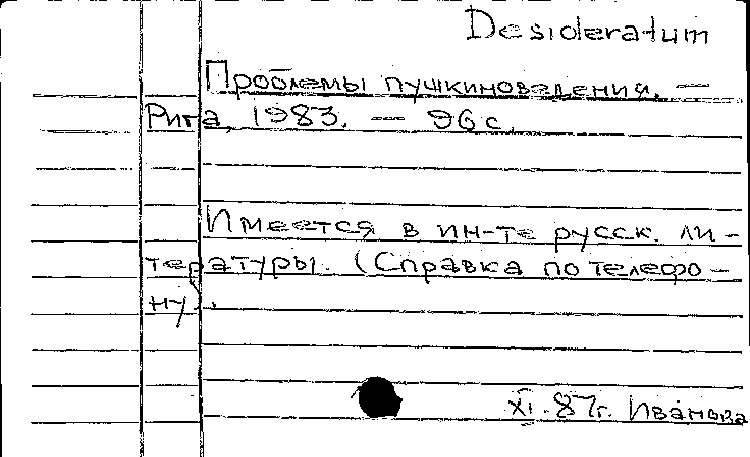 Desideratum
Проблемы пушкиноведения. —
Рига, 1983. — 96 с.
Имеется в ин-те русск. ли-
тературы. (Справка по телефо-
ну).
XI. 87г. Иванова